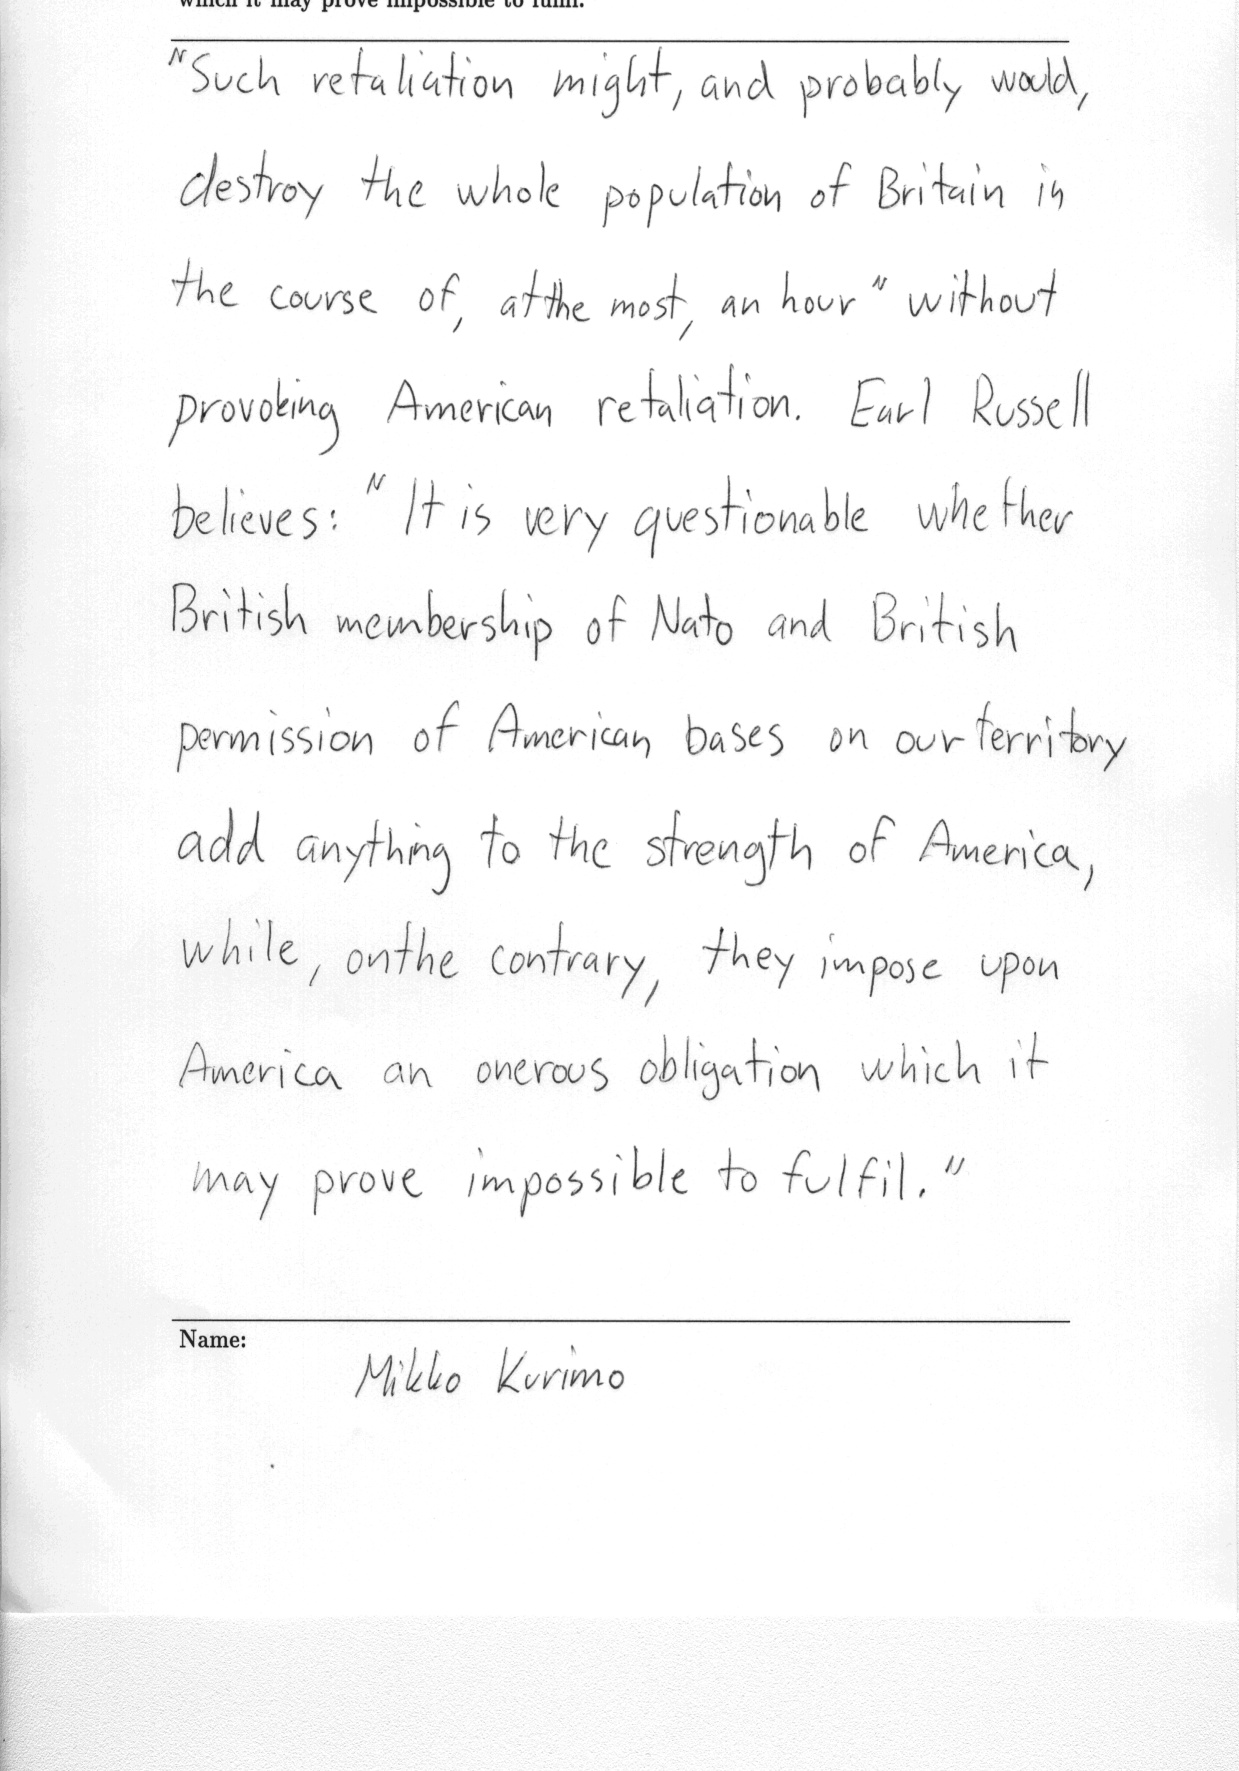 which it may prove impossible to fulfil.
"Such retaliation might, and probably would,
destroy the whole population of Britain in
the course of, at the most, an hour" without
provoking American retaliation. Earl Russell
believes: "It is very questionable whether
British membership of Nato and British
permission of American bases on our territory
add anything to the strength of America,
while, on the contrary, they impose upon
America an onerous obligation which it
may prove impossible to fulfil."
Name:
Mikko Kurimo